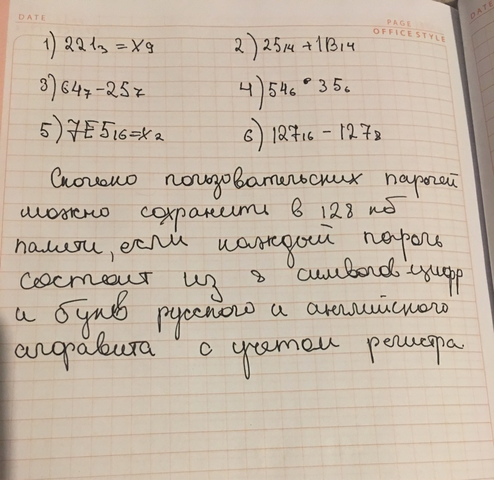 DATE
PAGE
OFFICE STYLE
DATE
1) 221₃ = X₉ 2) 25₁₄ + 1B₁₄
3) 647 - 257 4) 54₆ * 35₆
5) 7E5₁₆ = X₂ 6) 127₁₆ - 127₈
Сколько пользовательских паролей
можно сохранить в 128 кб
памяти, если каждый пароль
состоит из 8 символов-цифр
и букв русского и английского
алфавита с учетом регистра.